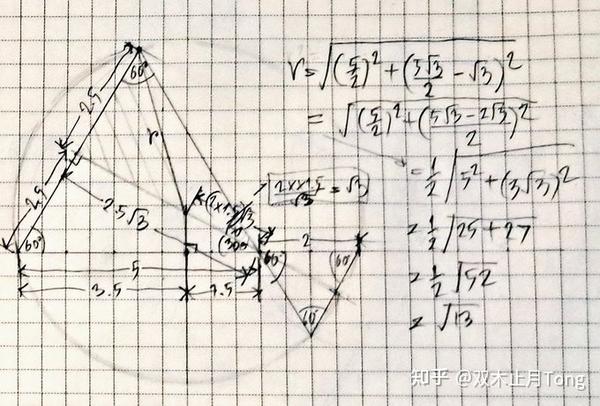 r = √((5/2)² + (5√3/2 - √3)²)
= √((5/2)² + ((5√3-2√3)/2)²)
= 1/2 √(5² + (3√3)²)
= 1/2 √(25+27)
= 1/2 √52
= √13
60°
2.5
r
2.5
2.5√3
2×1.5/√3 = √3
60°
30°
2
5
60°
60°
3.5
1.5
知乎 @双木止月Tong